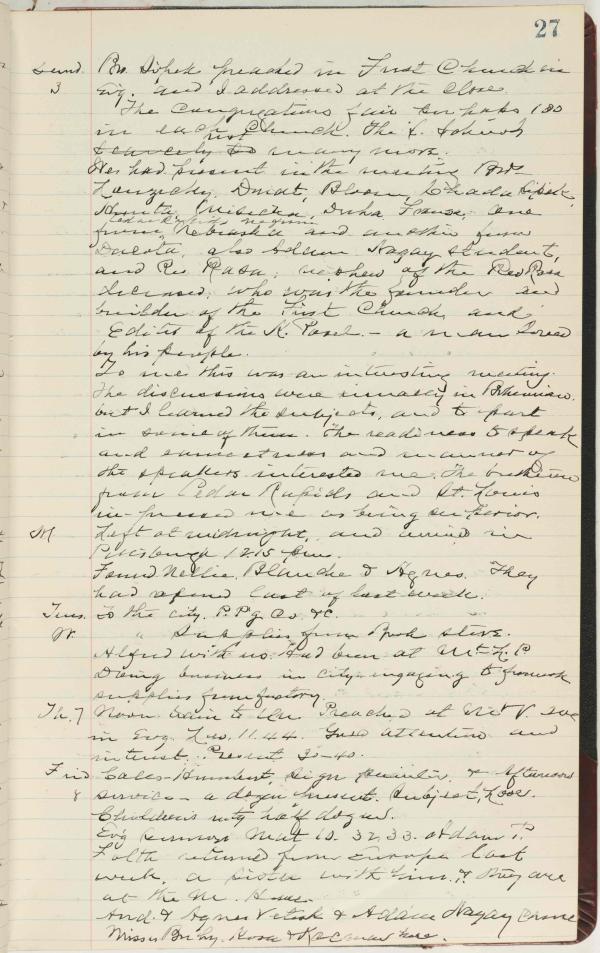 27
Sund. Bro. Sipek preached in First Church in
3 Evg. and I addressed at the close.
The congregations fair perhaps 150
in each Church. The S. Schools
scarcely to not many more.
We had present in the meeting Bros
Losa, Bloom, Chada Sipek,
Kunta, Prucha, one
Cedar Rapids
from Nebraska and another from
Dacota, also Adam Nagay student,
and Rev Rasa, nephew of the Rev Rosa
deceased, who was the founder and
builder of the First Church and
Editor of the K. Posel - a man loved
by his people.
To me this was an interesting meeting.
The discussions were usually in Bohemian.
but I learned the subjects, and to part
in some of them. The readiness to speak
and earnestness and manner of
the speakers interested me. The brethren
from Cedar Rapids and St. Louis
impressed me as being superior.
M Left at midnight, and arrived in
Pittsburgh 12.15 p.m.
Found Nellie, Blanche & Agnes. They
had last of last week.
Tues. To the city. P. Pg. Co &c.
W. " Supplies from Book store.
Alfred with us. Had been at Mt. L. P.
Doing business in city - engaging to
supplies from factory.
Th. 7 Noon train to Preached at Mt V.
in Evg. 11.44. Good attention and
interest. Present 30-40.
Frid. Calls - Himment, sign painter, & Afternoon
8 service - a dozen present. Subject, Love.
Children's mtg half dozen.
Evg Sermon Mat 10. 32,33. Adam P.
Falth returned from Europe last
week, a sister with him. & they are
at the M. House.
And. & Agnes Vetisk & Adam Nagay come
Misses Rosa & here.